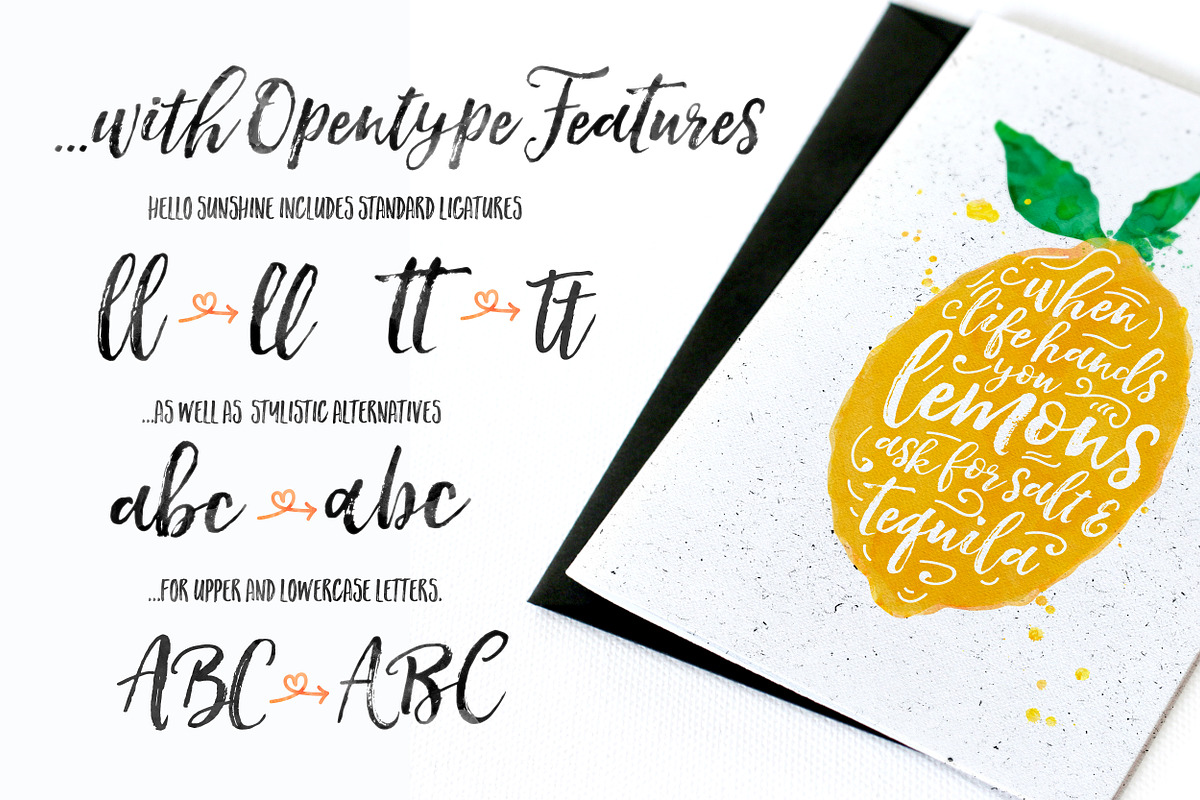 ...with Opentype Features
HELLO SUNSHINE INCLUDES STANDARD LIGATURES
ll ll tt tt
...AS WELL AS STYLISTIC ALTERNATIVES
abc abc
...FOR UPPER AND LOWERCASE LETTERS.
ABC ABC
when
life hands
you
lemons
ask for salt &
tequila